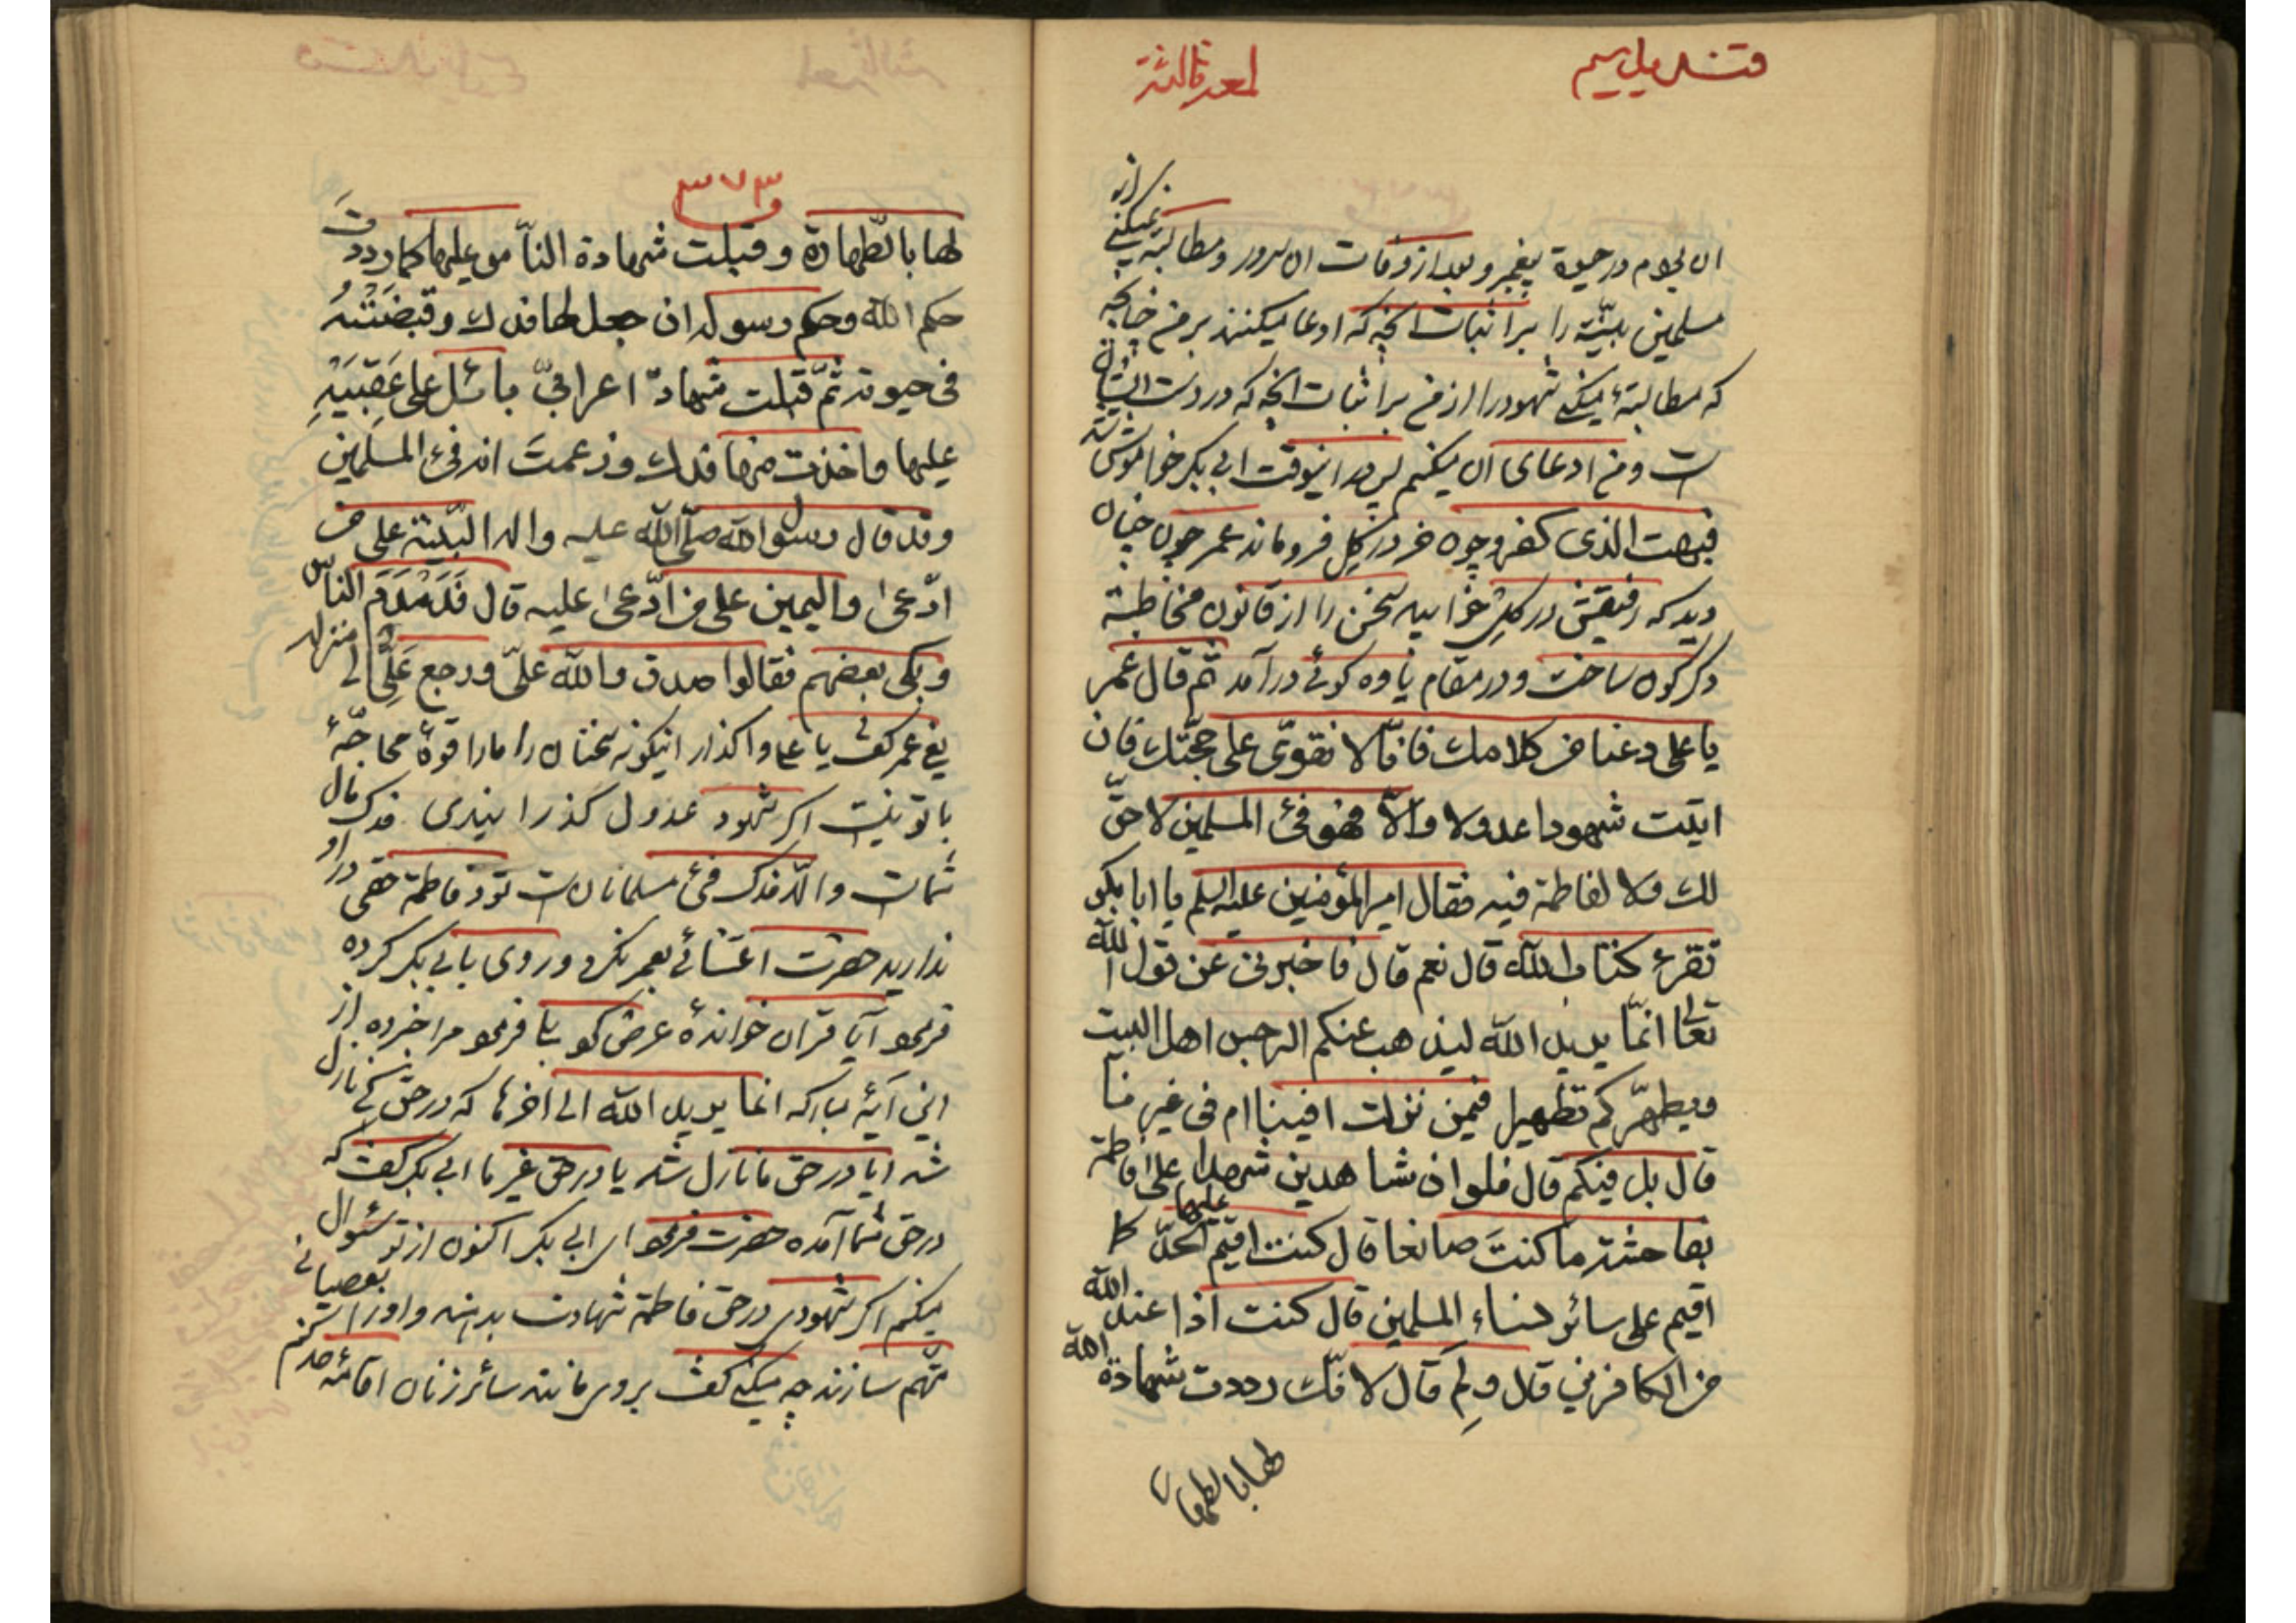 قندیل سیم
لمعه ثالثة
ان بودم در حیوة پیغمبر و بعد از وفات ان سرور و مطالبة نمیکنی از
مسلمین بیّنة را بر اثبات انچه که ادعا میکنند بر من چنانچه
که مطالبهٔ میکنی شهود را از من بر اثبات انچه که در دست ایشان
است و من ادعای ان میکنم پس در اینوقت ابی بکر خواموش شد
فبهت الذی کفر و چون خر در گل فرو ماند عمر چون چنان
دید که رفیقش در گل خوابید سخن را از قانون مخاطبة
دگرگون ساخت و در مقام یاوه گوئی درآمد ثم قال عمر
یا علی دعنا من کلامك فانّا لا نقوّی علی حجّتك فان
اتیت شهودا عدولا والّا فهو فیٔ المسلمین لا حقّ
لك ولا لفاطمة فیه فقال امیرالمؤمنین علیه السلم یا ابا بکر
تقرء کتاب الله قال نعم قال فاخبرنی عن قول الله
تعالی انّما یرید الله لیذهب عنکم الرجس اهل البیت
ویطهّرکم تطهیرا فیمن نزلت افینا ام فی غیرنا
قال بل فیکم قال فلو ان شاهدین شهدا علی فاطمة
بفاحشة ما کنتَ صانعا قال کنت اقیم علیها الحدّ کما
اقیم علی سائر نساء المسلمین قال کنت اذا عند الله
من الکافرین قال ولِمَ قال لانّك رددت شهادة الله
لها بالطهارة
٣٧٣
لها بالطّهارة وقبلت شهادة النّاس علیها کما رددتَ
حکم الله وحکم رسوله ان جعل لها فدك وقبضَتْهُ
فی حیوته ثمّ قبلت شهادة اعرابیّ بائل علی عَقِبَیْهِ
علیها واخذت منها فدك وزعمتَ انه فیٔ المسلمین
وقد قال رسول الله صلّی الله علیه واله البیّنة علی من
ادّعی والیمین علی من ادّعی علیه قال فَدَمْدَمَ الناس
وبکی بعضهم فقالوا صدق والله علیّ ورجع عَلِیٌّ الی منزله
یعنی عمر گفت یا علی واگذار اینگونه سخنان را ما را قوهٔ محاجّهٔ
با تو نیست اگر شهود عدول گذرانیدی فدک مال
شماست والّا فدک فیٔ مسلمانان است تو و فاطمة حقی در او
ندارید حضرت اعتنائی بعمر نکرد و روی بابی بکر کرده
فرمود آیا قران خواندهٔ عرض کرد بلی فرمود مرا خبر ده از
این آیهٔ مبارکه انما یرید الله الی آخرها که در حق کی نازل
شد ایا در حق ما نازل شد یا در حق غیر ما ابی بکر گفت که
در حق شما آمده حضرت فرمود ای ابی بکر اکنون از تو سئوال
میکنم اگر شهودی در حق فاطمة شهادت بدهند و او را بعصیانی
متّهم سازند چه میکنی گفت بر وی مانند سائر زنان اقامهٔ حد میکنم